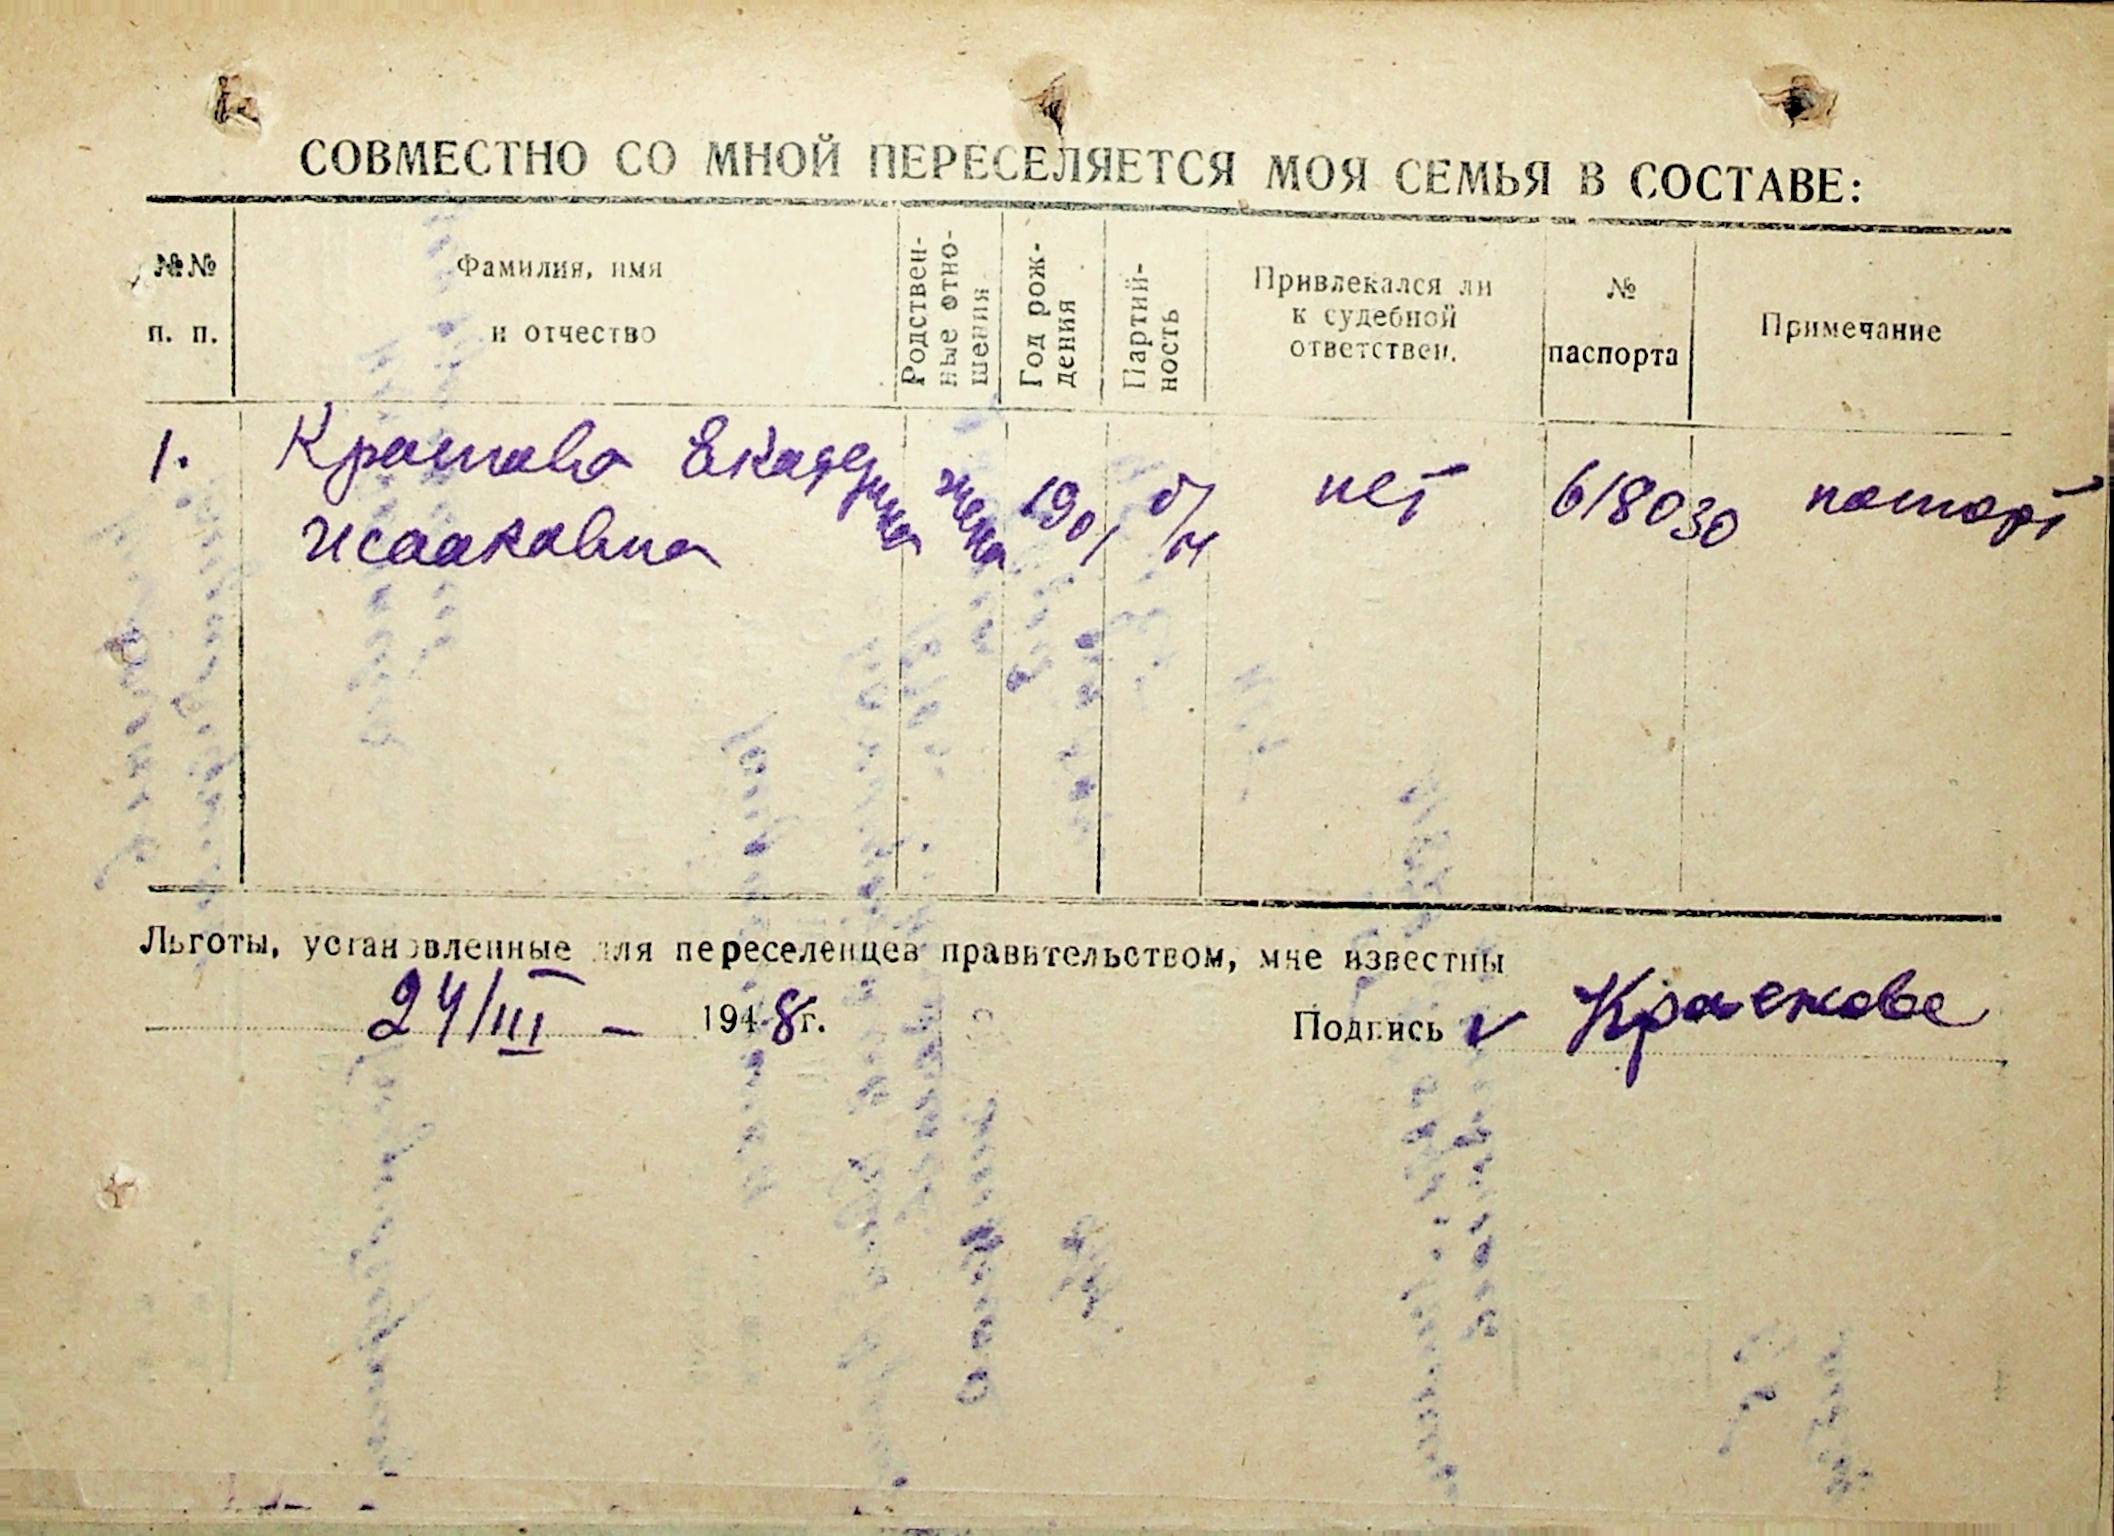 СОВМЕСТНО СО МНОЙ ПЕРЕСЕЛЯЕТСЯ МОЯ СЕМЬЯ В СОСТАВЕ:
№№ п. п.
Фамилия, имя и отчество
Родственные отношения
Год рождения
Партийность
Привлекался ли к судебной ответствен.
№ паспорта
Примечание
1. Екатерина жена 1901 б/п нет 618030 паспорт
Исааковна
Льготы, установленные для переселенцев правительством, мне известны
24/III – 1948 г. Подпись